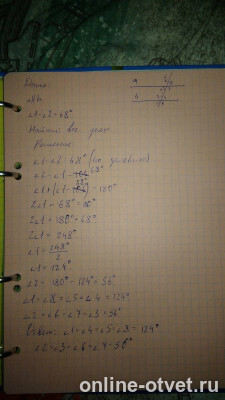 Дано:
a||b
∠1-∠2=68°
Найти все углы
Решение:
∠1-∠2=68° (по условию)
∠2=∠1-68°
∠1+(∠1-68°)=180°
2∠1-68°=
2∠1=180°+68°
2∠1=248°
∠1=248°/2
∠1=124°
∠2=180°-124°=56°
∠1=∠8=∠5=∠4=124°
∠2=∠6=∠7=∠3=56°
Ответ: ∠1=∠4=∠5=∠8=124°
∠2=∠3=∠6=∠7=56°
online-otvet.ru